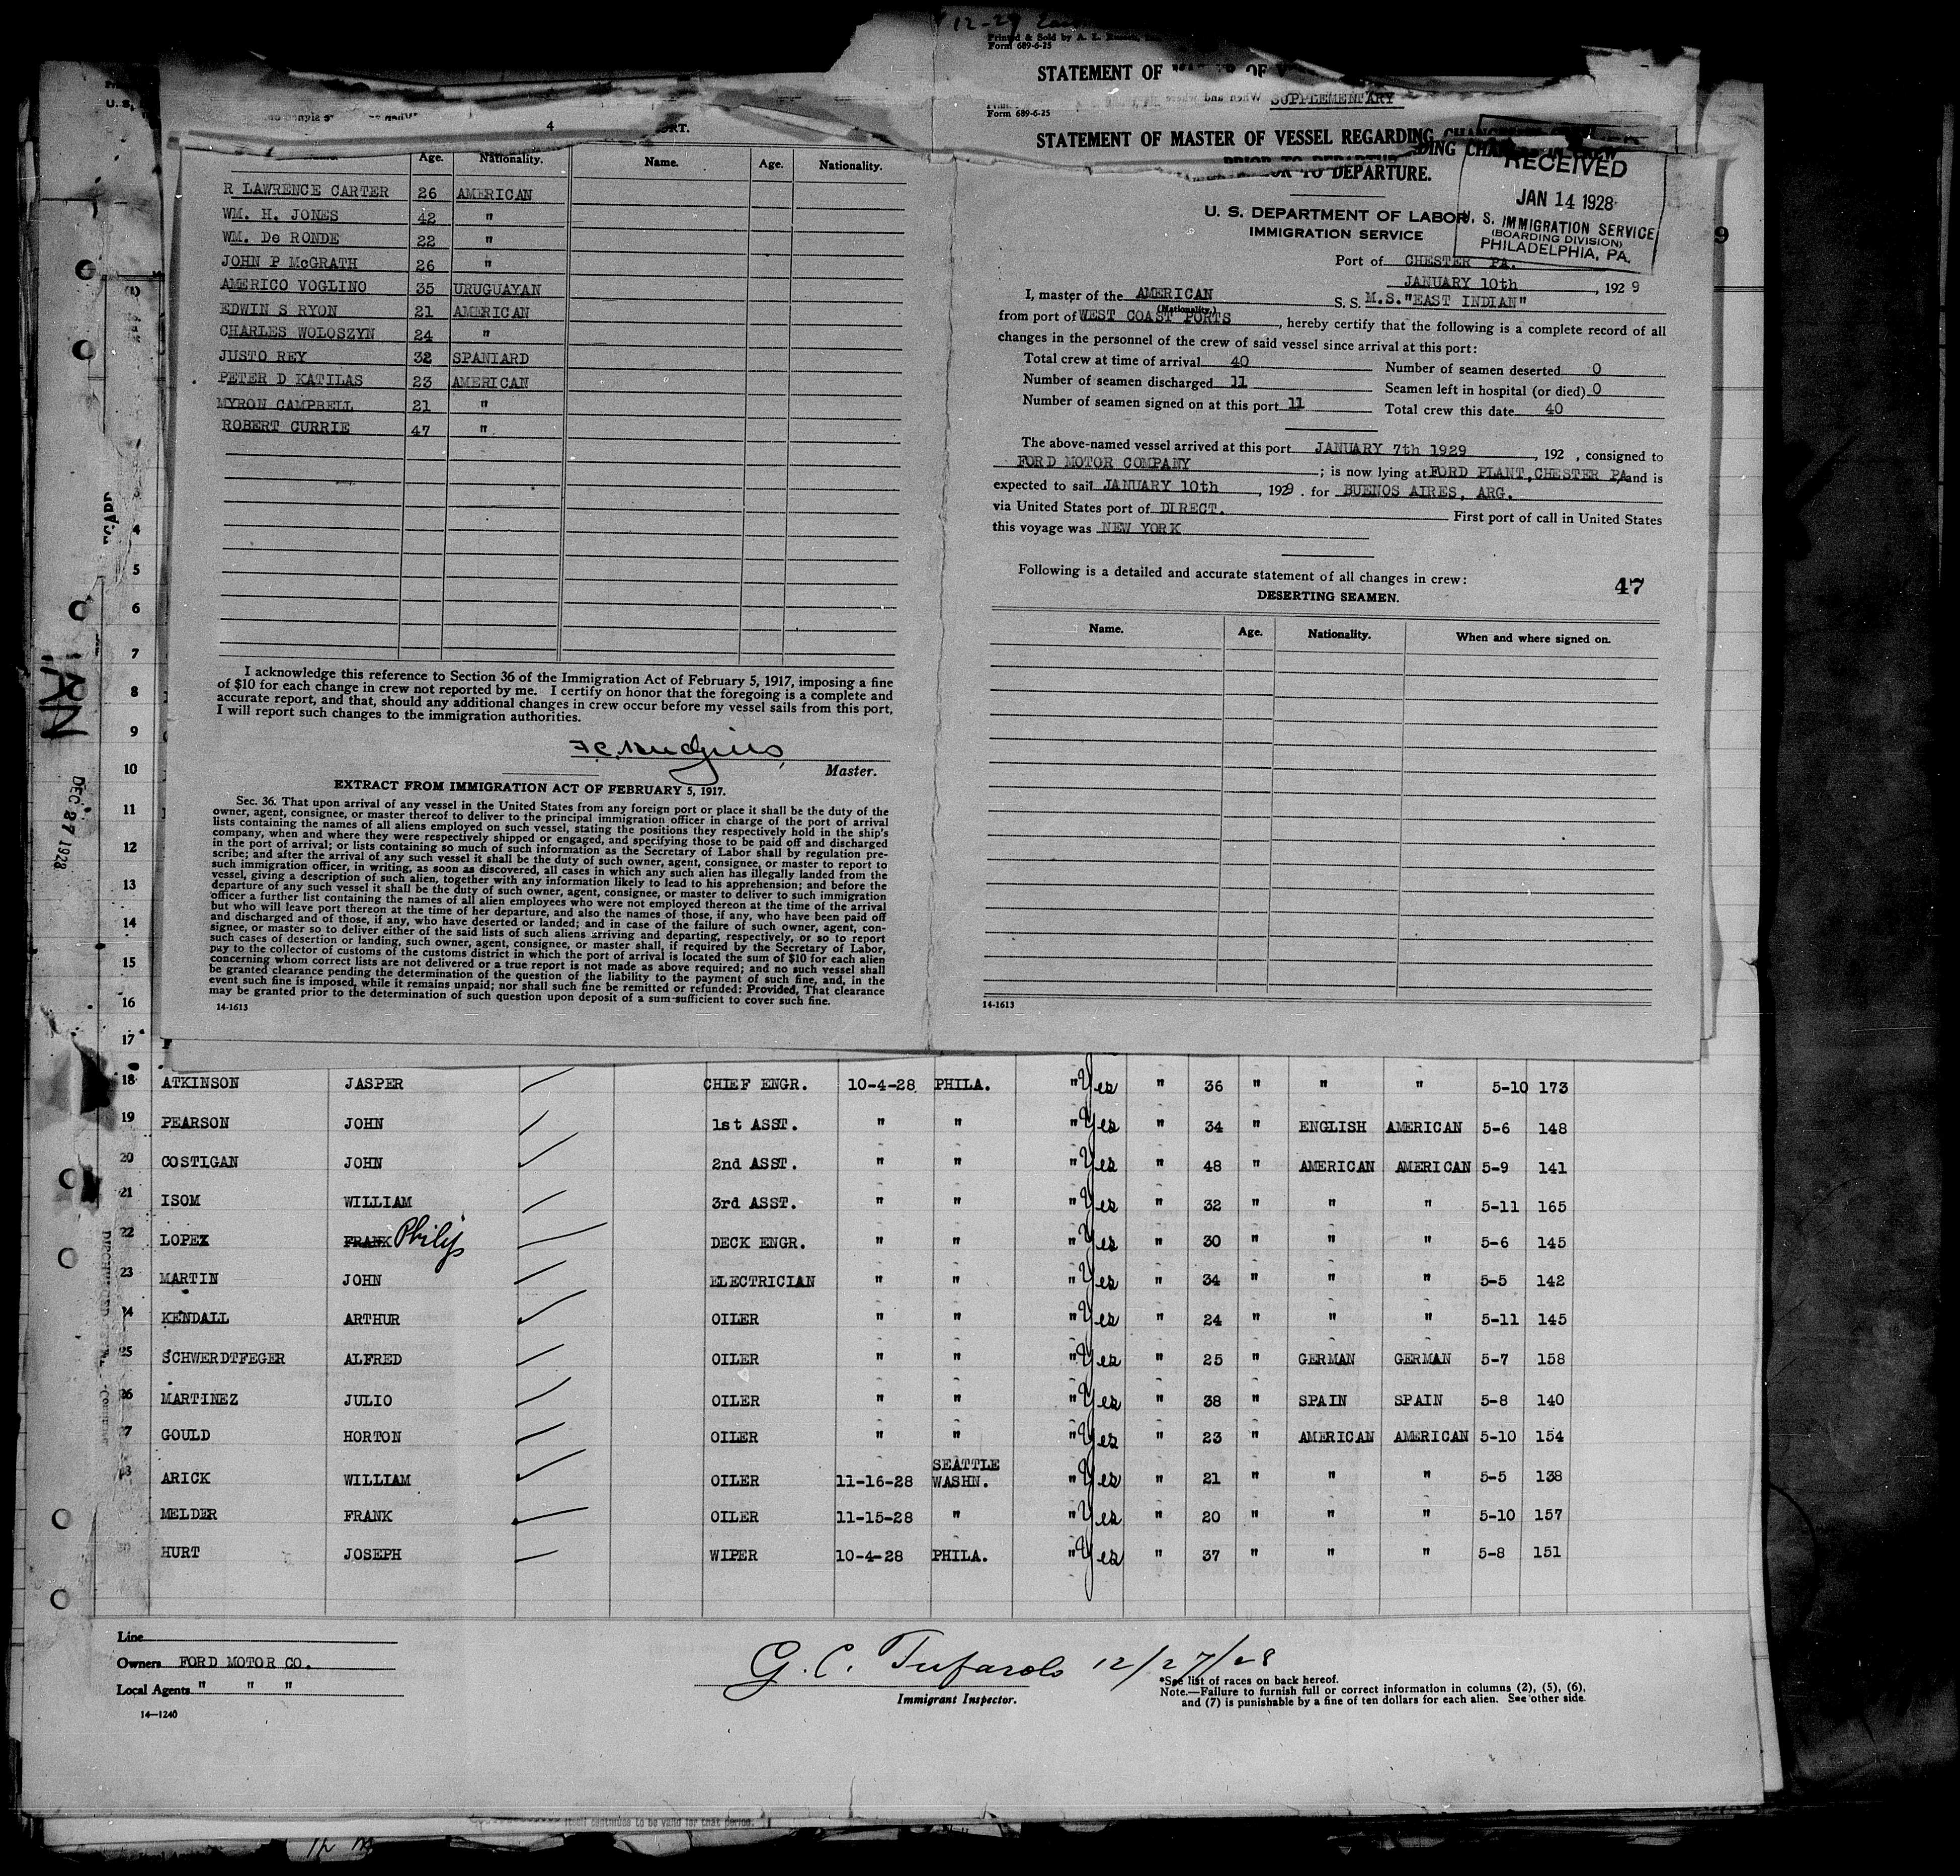 12-29
Printed & Sold by A. E.
Form 689-6-25
STATEMENT OF MASTER OF
SUPPLEMENTARY
Form 689-6-25
STATEMENT OF MASTER OF VESSEL REGARDING
PRIOR TO DEPARTURE.
RECEIVED
JAN 14 1928
U. S. IMMIGRATION SERVICE
(BOARDING DIVISION)
PHILADELPHIA, PA.
U. S. DEPARTMENT OF LABOR
IMMIGRATION SERVICE
9
Port of CHESTER PA.
JANUARY 10th, 1929
I, master of the AMERICAN S. S. M.S. "EAST INDIAN"
(Nationality.)
from port of WEST COAST PORTS, hereby certify that the following is a complete record of all
changes in the personnel of the crew of said vessel since arrival at this port:
Total crew at time of arrival 40 Number of seamen deserted 0
Number of seamen discharged 11 Seamen left in hospital (or died) 0
Number of seamen signed on at this port 11 Total crew this date 40
The above-named vessel arrived at this port JANUARY 7th 1929, 192 , consigned to
FORD MOTOR COMPANY; is now lying at FORD PLANT, CHESTER PA and is
expected to sail JANUARY 10th, 1929. for BUENOS AIRES, ARG.
via United States port of DIRECT. First port of call in United States
this voyage was NEW YORK
Following is a detailed and accurate statement of all changes in crew:
47
DESERTING SEAMEN.
Name. Age. Nationality. When and where signed on.
14-1613
4
Age. Nationality. Name. Age. Nationality.
R LAWRENCE CARTER 26 AMERICAN
WM. H. JONES 42 "
WM. De RONDE 22 "
JOHN P McGRATH 26 "
AMERICO VOGLINO 35 URUGUAYAN
EDWIN S RYON 21 AMERICAN
CHARLES WOLOSZYN 24 "
JUSTO REY 32 SPANIARD
PETER D KATILAS 23 AMERICAN
MYRON CAMPBELL 21 "
ROBERT CURRIE 47 "
I acknowledge this reference to Section 36 of the Immigration Act of February 5, 1917, imposing a fine
of $10 for each change in crew not reported by me. I certify on honor that the foregoing is a complete and
accurate report, and that, should any additional changes in crew occur before my vessel sails from this port,
I will report such changes to the immigration authorities.
Master.
EXTRACT FROM IMMIGRATION ACT OF FEBRUARY 5, 1917.
Sec. 36. That upon arrival of any vessel in the United States from any foreign port or place it shall be the duty of the
owner, agent, consignee, or master thereof to deliver to the principal immigration officer in charge of the port of arrival
lists containing the names of all aliens employed on such vessel, stating the positions they respectively hold in the ship's
company, when and where they were respectively shipped or engaged, and specifying those to be paid off and discharged
in the port of arrival; or lists containing so much of such information as the Secretary of Labor shall by regulation pre-
scribe; and after the arrival of any such vessel it shall be the duty of such owner, agent, consignee, or master to report to
such immigration officer, in writing, as soon as discovered, all cases in which any such alien has illegally landed from the
vessel, giving a description of such alien, together with any information likely to lead to his apprehension; and before the
departure of any such vessel it shall be the duty of such owner, agent, consignee, or master to deliver to such immigration
officer a further list containing the names of all alien employees who were not employed thereon at the time of the arrival
but who will leave port thereon at the time of her departure, and also the names of those, if any, who have been paid off
and discharged and of those, if any, who have deserted or landed; and in case of the failure of such owner, agent, con-
signee, or master so to deliver either of the said lists of such aliens arriving and departing, respectively, or so to report
such cases of desertion or landing, such owner, agent, consignee, or master shall, if required by the Secretary of Labor,
pay to the collector of customs of the customs district in which the port of arrival is located the sum of $10 for each alien
concerning whom correct lists are not delivered or a true report is not made as above required; and no such vessel shall
be granted clearance pending the determination of the question of the liability to the payment of such fine, and, in the
event such fine is imposed, while it remains unpaid; nor shall such fine be remitted or refunded: Provided, That clearance
may be granted prior to the determination of such question upon deposit of a sum sufficient to cover such fine.
14-1613
DEC 27 1928
4
5
6
7
8
9
10
11
12
13
14
15
16
17
18 ATKINSON JASPER CHIEF ENGR. 10-4-28 PHILA. " Yes " 36 " " " 5-10 173
19 PEARSON JOHN 1st ASST. " " " Yes " 34 " ENGLISH AMERICAN 5-6 148
20 COSTIGAN JOHN 2nd ASST. " " " Yes " 48 " AMERICAN AMERICAN 5-9 141
21 ISOM WILLIAM 3rd ASST. " " " Yes " 32 " " " 5-11 165
22 LOPEX FRANK Philip DECK ENGR. " " " Yes " 30 " " " 5-6 145
23 MARTIN JOHN ELECTRICIAN " " " Yes " 34 " " " 5-5 142
24 KENDALL ARTHUR OILER " " " Yes " 24 " " " 5-11 145
25 SCHWERDTFEGER ALFRED OILER " " " Yes " 25 " GERMAN GERMAN 5-7 158
26 MARTINEZ JULIO OILER " " " Yes " 38 " SPAIN SPAIN 5-8 140
27 GOULD HORTON OILER " " " Yes " 23 " AMERICAN AMERICAN 5-10 154
ARICK WILLIAM OILER 11-16-28 SEATTLE WASHN. " Yes " 21 " " " 5-5 138
MELDER FRANK OILER 11-15-28 " " Yes " 20 " " " 5-10 157
30 HURT JOSEPH WIPER 10-4-28 PHILA. " Yes " 37 " " " 5-8 151
Line
Owners FORD MOTOR CO.
Local Agents " " "
14-1240
G. C. Tufarolo 12/27/28
Immigrant Inspector.
*See list of races on back hereof.
Note.—Failure to furnish full or correct information in columns (2), (5), (6),
and (7) is punishable by a fine of ten dollars for each alien. See other side.
itself continues to be valid for that period.